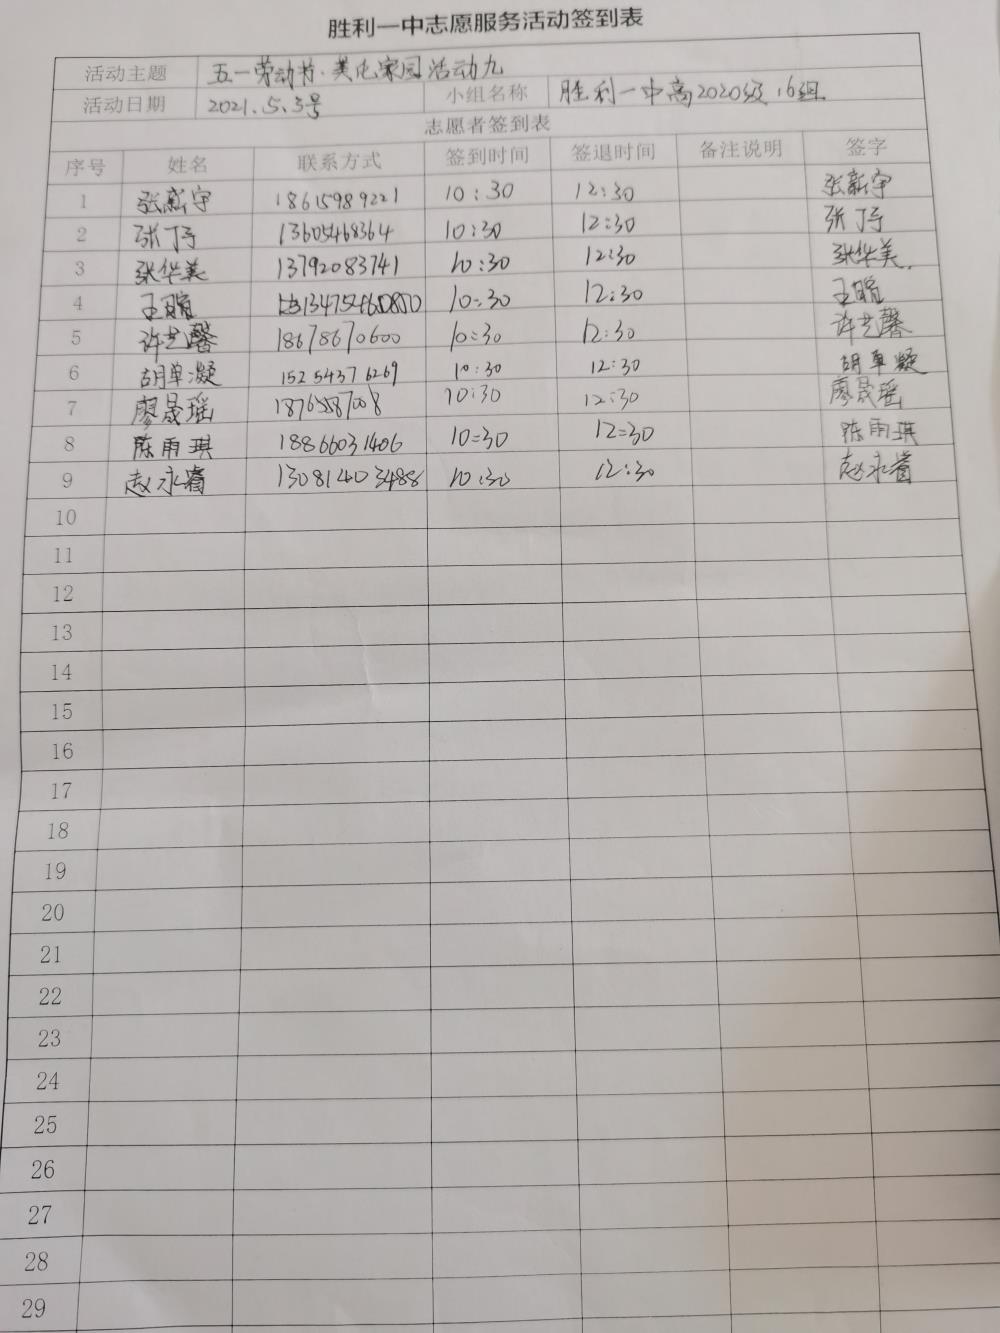 胜利一中志愿服务活动签到表
活动主题 五一劳动节·美化家园活动九
活动日期 2021.5.3号 小组名称 胜利一中高2020级16组
志愿者签到表
序号 姓名 联系方式 签到时间 签退时间 备注说明 签字
1 张新宇 18615989221 10:30 12:30 张新宇
2 张丁予 13605468364 10:30 12:30 张丁予
3 张华美 13792083741 10:30 12:30 张华美
4 王暄 10:30 12:30 王暄
5 许艺馨 18678670600 10:30 12:30 许艺馨
6 胡单凝 15254376269 10:30 12:30 胡单凝
7 廖晟瑶 10:30 12:30 廖晟瑶
8 陈雨琪 18866031406 10:30 12:30 陈雨琪
9 赵永睿 13081403488 10:30 12:30 赵永睿
10
11
12
13
14
15
16
17
18
19
20
21
22
23
24
25
26
27
28
29